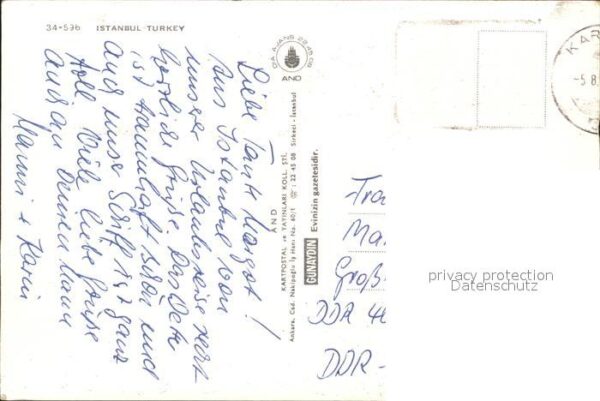 34-596 ISTANBUL TURKEY
Liebe Tante Margot!
Aus Istanbul von
unserer Urlaubsreise herz-
herzliche Grüße. Das Wetter
ist traumhaft schön und
auch unser Schiff ist ganz
toll. Viele liebe Grüße
auch an Deinen Mann
Manni + Karin
AND
AND
KARTPOSTAL ve YAYINLARI KOLL. ŞTİ.
Ankara. Cad. Nakipoğlu İş Hanı No. 60/1 ☏: 22 45 08 Sirkeci - İstanbul
GÜNAYDIN Evinizin gazetesidir.
Fra
Ma
Groß
DDR
DDR-
KAR
-5.8
privacy protection
Datenschutz